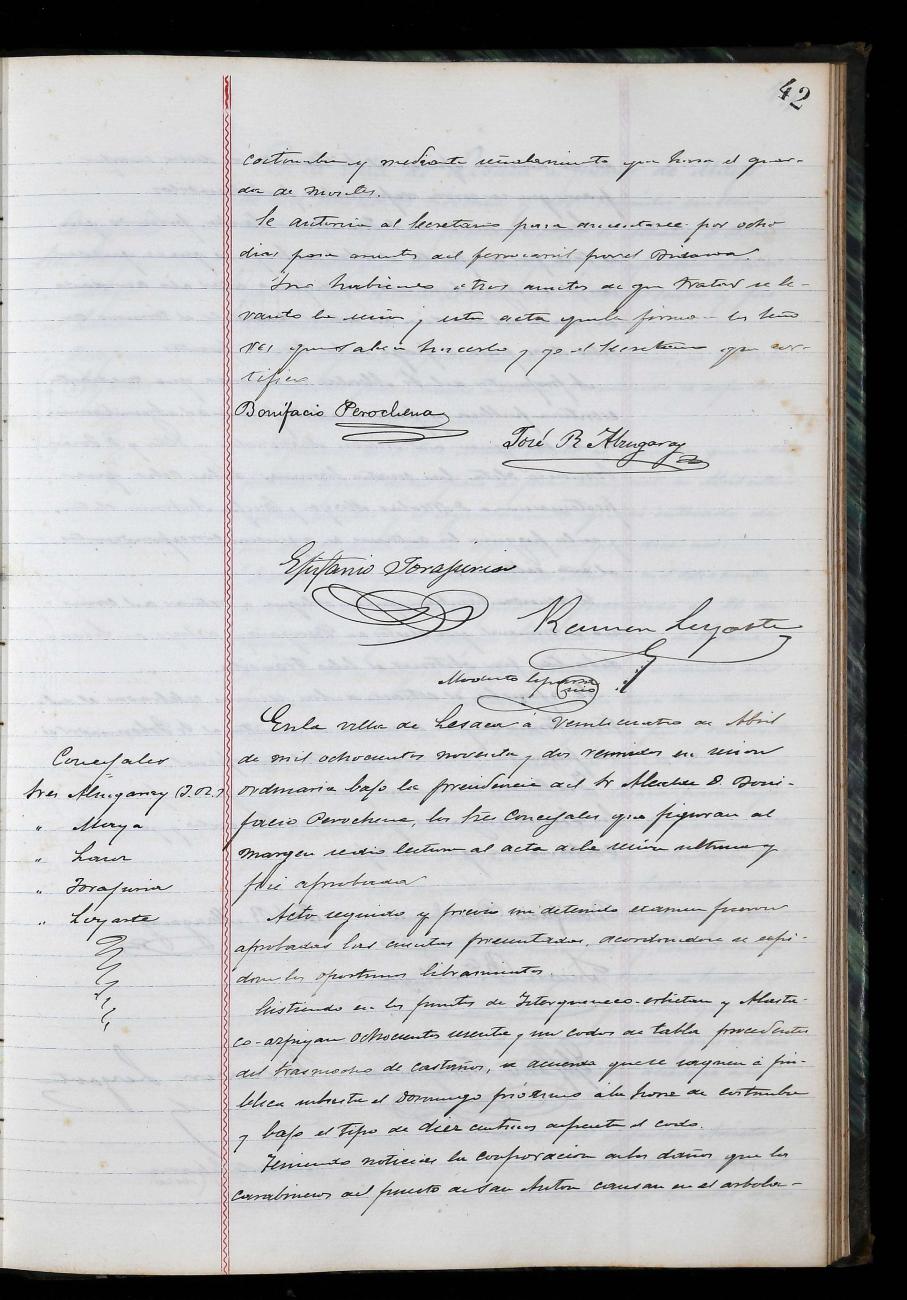 42
costumbre y mediante señalamiento que hará el guar-
da de montes.
Se autoriza al Secretario para ausentarse por ocho
dias para asuntos del ferrocarril por el Bidasoa.
Y no habiendo otros asuntos de que tratar se le-
vantó la sesión y esta acta que la firman los Seño
res que saben hacerlo y yo el Secretario que cer-
tifico.
Bonifacio Perochena
José R Alzugaray
Estefanio Torajuria
Ramon Legaste
Modesto
En la villa de Lesaca á veinticuatro de Abril
de mil ochocientos noventa y dos reunidos en sesion
ordinaria bajo la presidencia del Sr Alcalde D. Boni-
facio Perochena, los Sres Concejales que figuran al
margen se dió lectura al acta de la sesión ultima y
fué aprobada
Concejales
Sres Alzugaray (J. R.)
" Moya
"
" Torajuria
" Legaste
Acto seguido y previo un detenido examen fueron
aprobadas las cuentas presentadas, acordandose se espi-
dan los oportunos libramientos.
Existiendo en los puntos de y
ochocientos sesenta y un codos de tabla procedentes
del trasmocho de castaños, se acuerda que se saquen á pú-
blica subasta el Domingo próximo á la hora de costumbre
y bajo el tipo de diez centimos de peseta el codo.
Teniendo noticias la corporacion de los daños que los
carabineros del puesto de San Anton causan en el arbola-